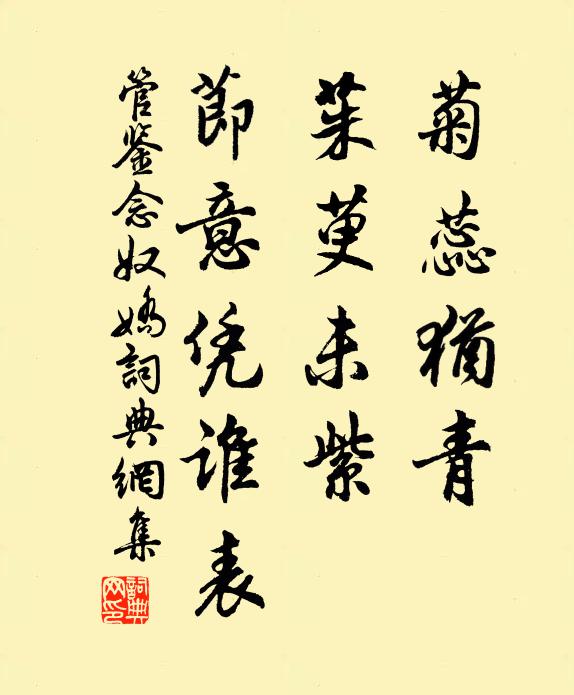 菊蕊猶青
茱萸未紫
節意凭誰表
管鉴念奴嬌詞典網集
詞典网印